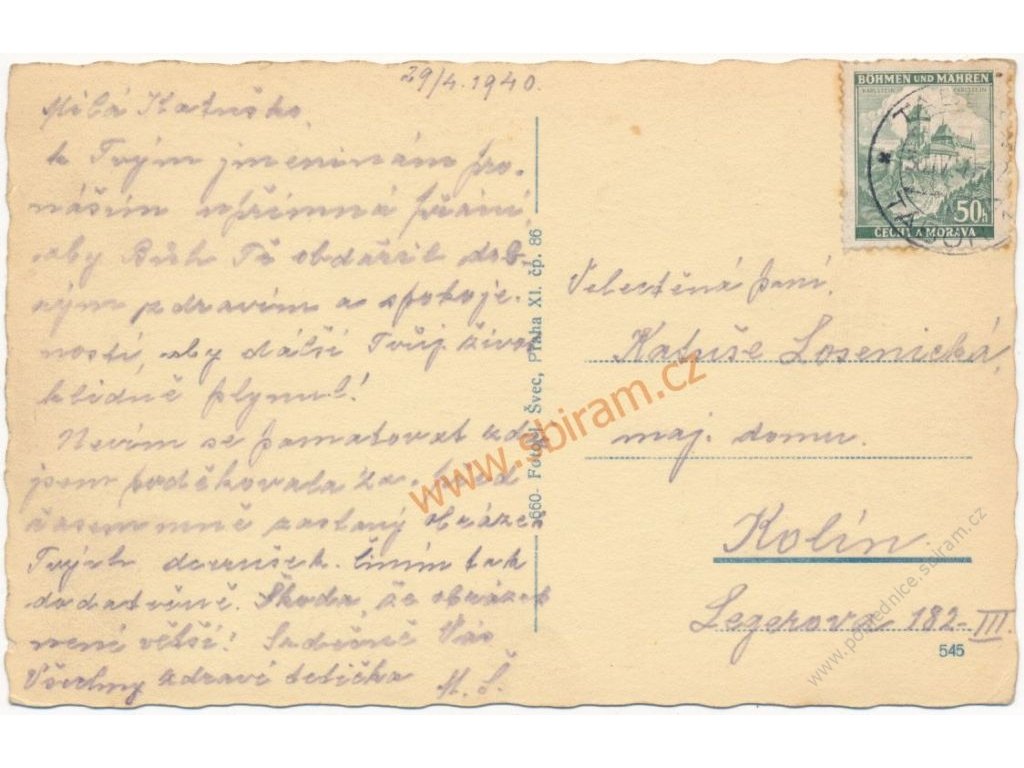 29/4. 1940.
Milá Katuško.
k Tvým jmeninám pro-
náším upřímná přání,
aby Bůh Tě obdařil dob-
rým zdravím a spokoje-
ností, aby další Tvůj život
klidně plynul!
Nevím se pamatovat zda
jsem poděkovala za, před
časem mně zaslaný obrázek
Tvých dcerušek. činím tak
dodatečně. Škoda, že obrázek
není větší! Srdečně Vás
Všechny zdraví tetička
M. Š.
660- Fotogr. Švec, Praha XI. čp. 86
BÖHMEN UND MÄHREN
KARLSTEIN KARLŠTEJN
50h
ČECHY A MORAVA
Velectěná paní,
Katuše Losenická,
maj. domu.
Kolín.
Legerova 182-III.
545
www.sbiram.cz
www.pohlednice.sbiram.cz